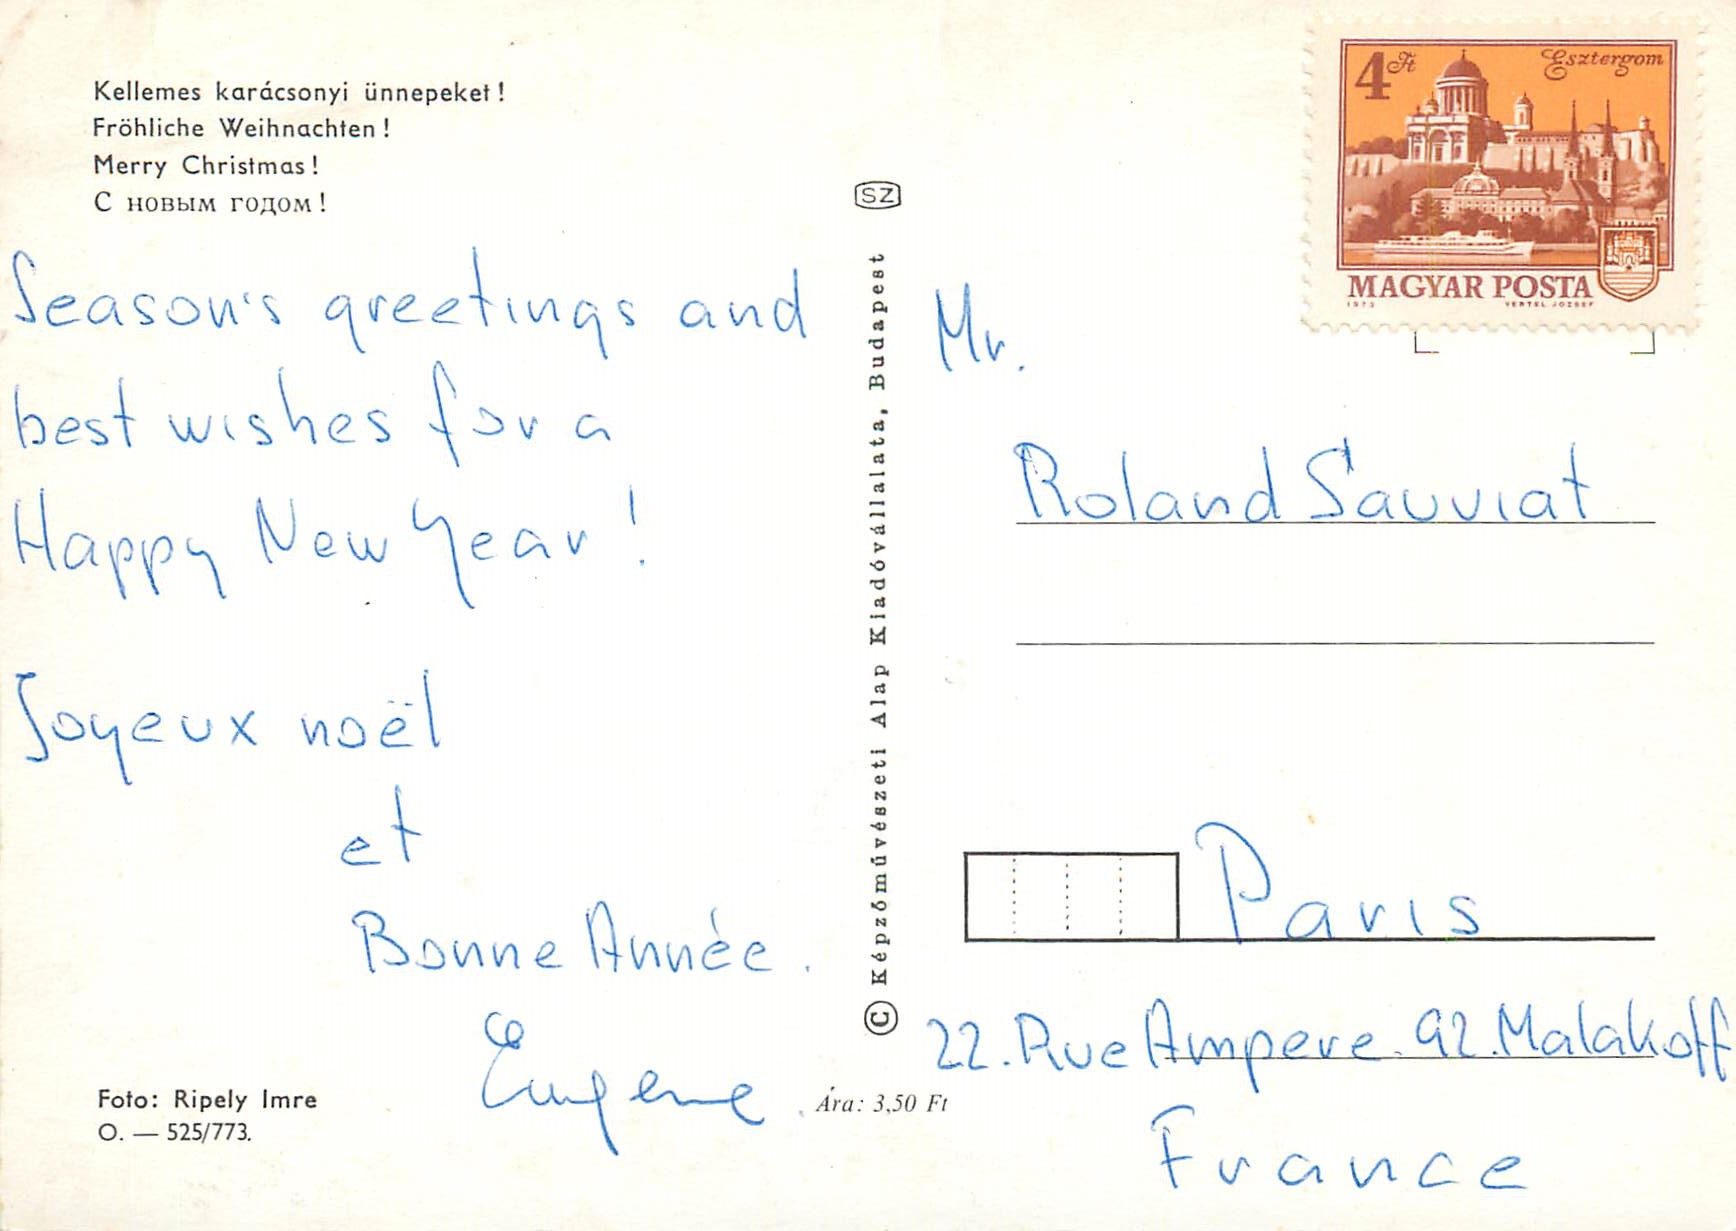 Kellemes karácsonyi ünnepeket!
Fröhliche Weihnachten!
Merry Christmas!
С новым годом!
Season's greetings and
best wishes for a
Happy New Year!
Joyeux noël
et
Bonne Année.
Eugene
Foto: Ripely Imre
O. — 525/773.
Ára: 3,50 Ft
SZ
© Képzőművészeti Alap Kiadóvállalata, Budapest
4 Ft
Esztergom
MAGYAR POSTA
1973 VERTEL JÓZSEF
Mr.
Roland Sauviat
Paris
22. Rue Ampere. 92. Malakoff
France